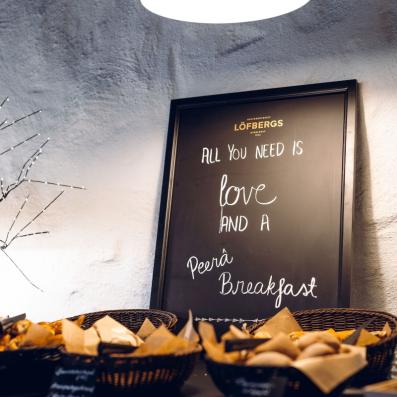 LÖFBERGS
ALL YOU NEED IS
love
AND A
Peerâ
Breakfast